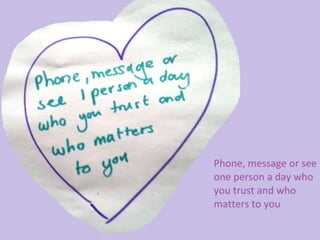 Phone, message or
see 1 person a day
who you trust and
who matters
to you
Phone, message or see
one person a day who
you trust and who
matters to you